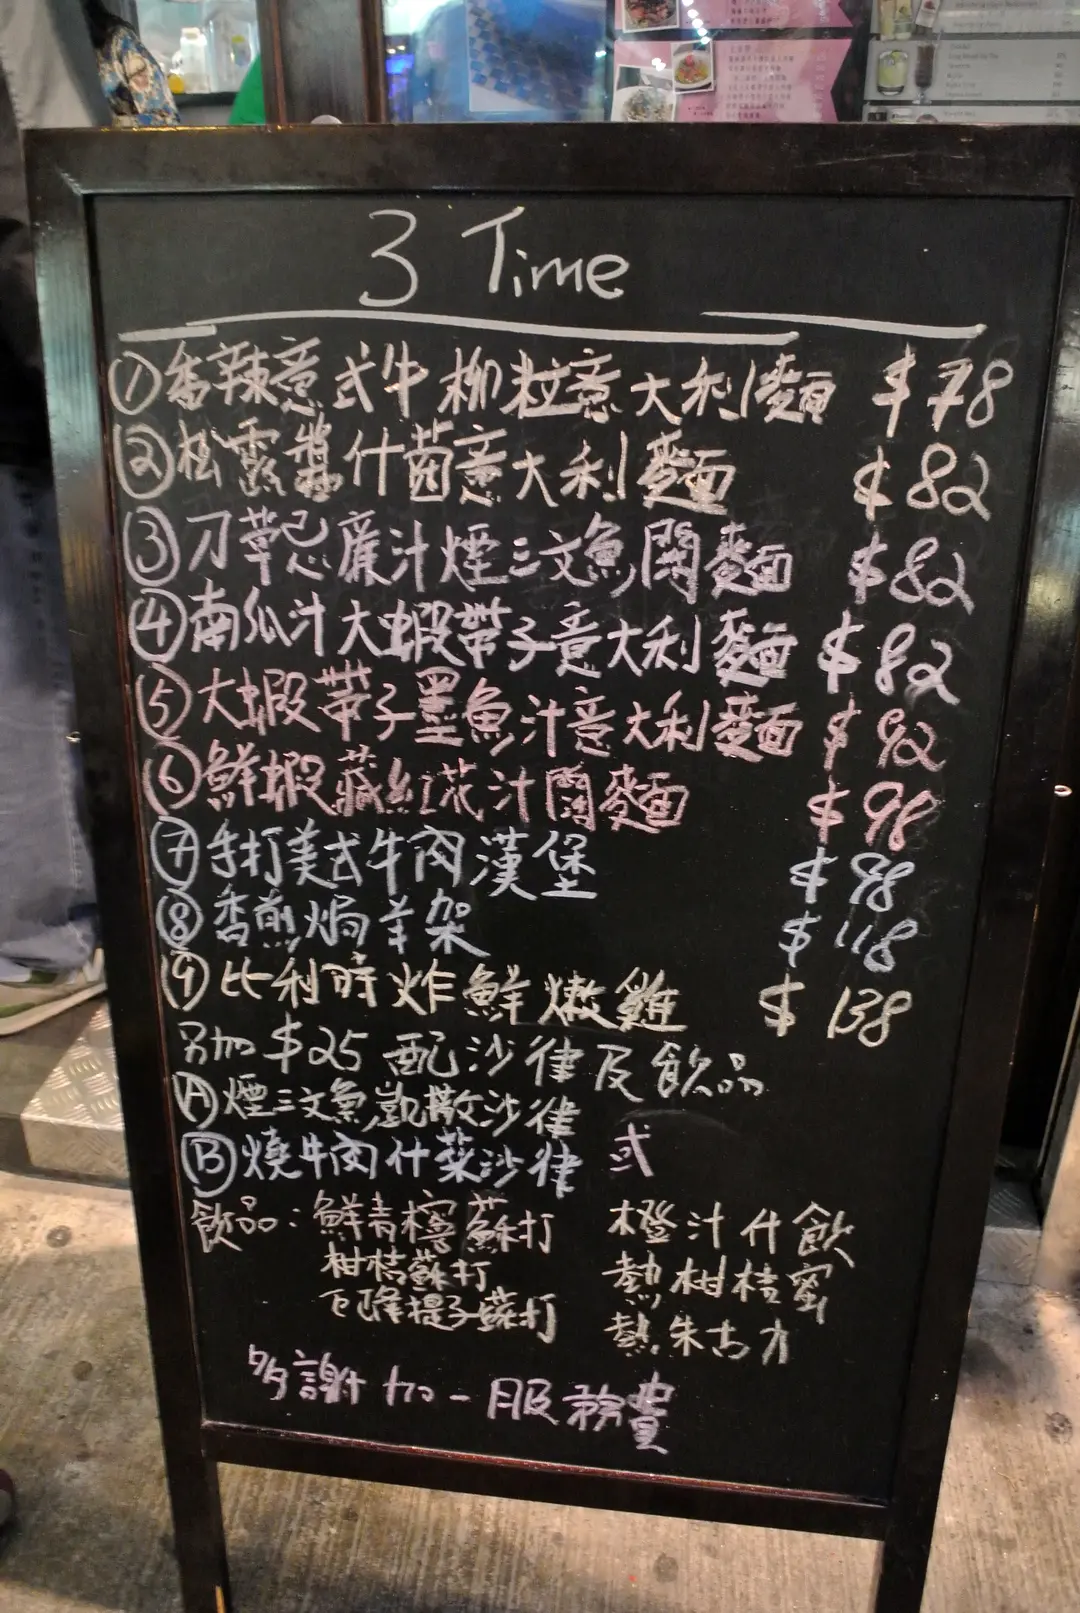 3 Time
① 香辣意式牛柳粒意大利麵 $78
② 松露醬什菌意大利麵 $82
③ 刁草忌廉汁煙三文魚闊麵 $82
④ 南瓜汁大蝦帶子意大利麵 $82
⑤ 大蝦帶子墨魚汁意大利麵 $92
⑥ 鮮蝦藏紅花汁闊麵 $98
⑦ 手打美式牛肉漢堡 $88
⑧ 香煎焗羊架 $118
⑨ 比利時炸鮮嫩雞 $138
另加 $25 配沙律及飲品
Ⓐ 煙三文魚凱撒沙律
Ⓑ 燒牛肉什菜沙律 或
飲品：鮮青檸蘇打 橙汁什飲
柑桔蘇打 熱柑桔蜜
巨峰提子蘇打 熱朱古力
多謝加一服務費